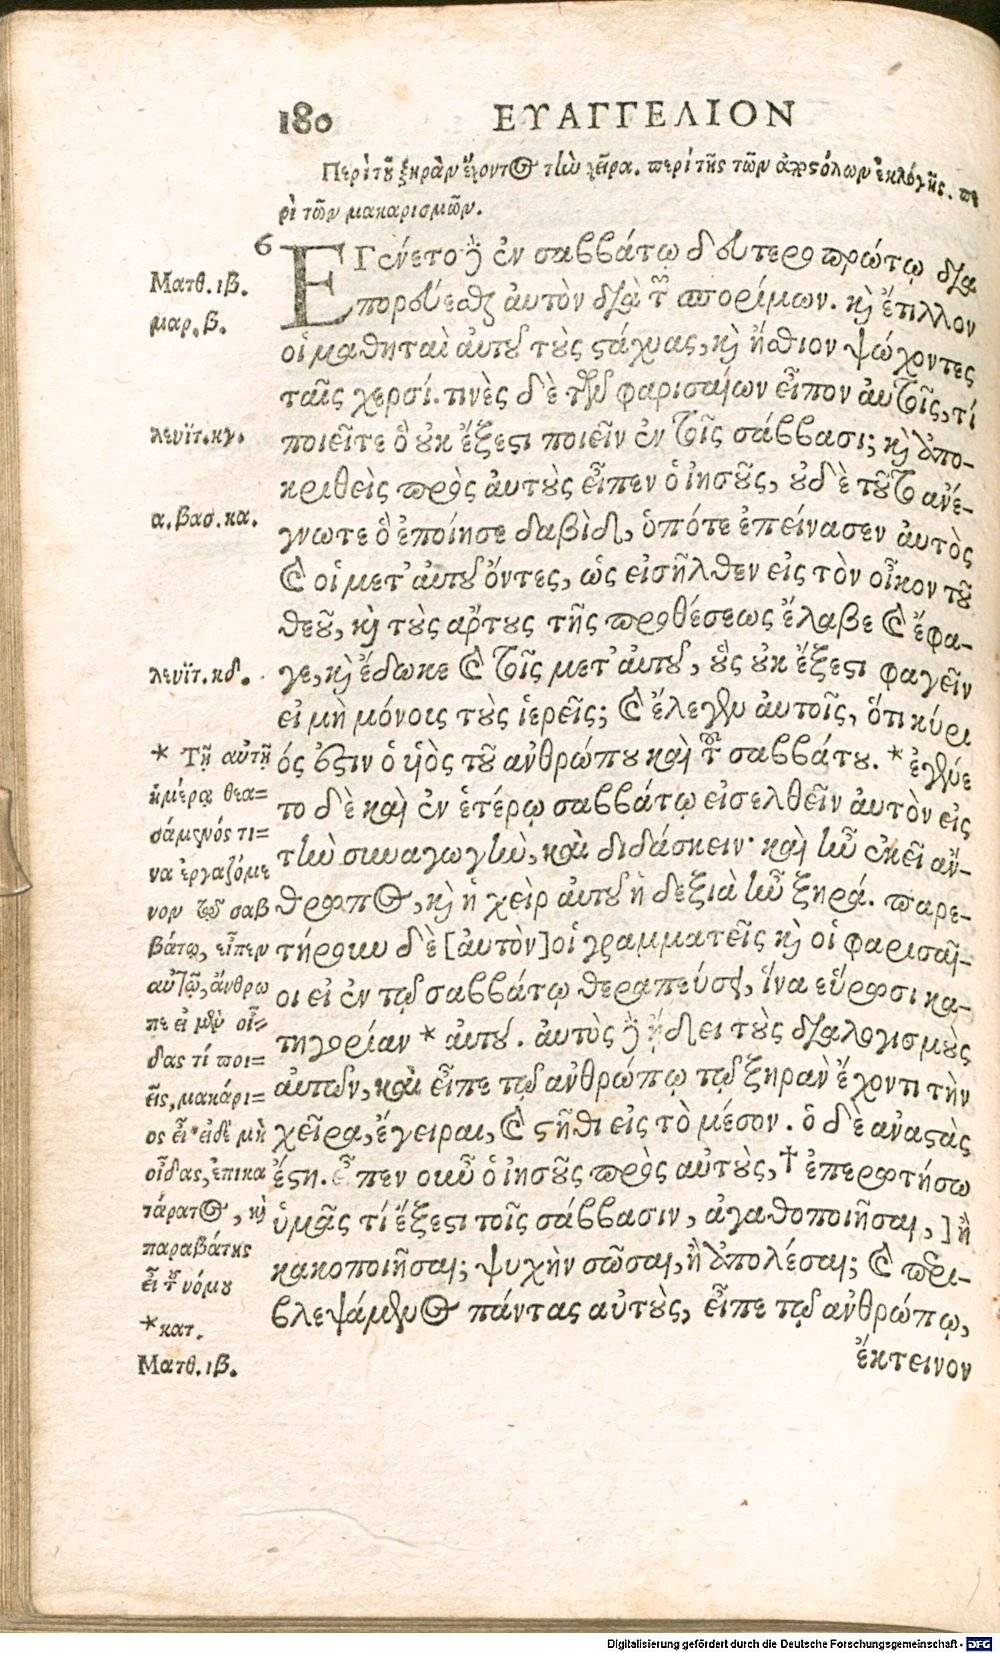 180 ΕΥΑΓΓΕΛΙΟΝ
Περὶ τοῦ ξηρὰν ἔχοντος τὴν χεῖρα. περὶ τῆς τῶν ἀποστόλων ἐκλογῆς. πε
ρὶ τῶν μακαρισμῶν.
6
ΕΓένετο δὲ ἐν σαββάτῳ δευτεροπρώτῳ δια
πορεύεσθαι αὐτὸν διὰ τῶν σπορίμων. καὶ ἔτιλλον
οἱ μαθηταὶ αὐτοῦ τοὺς στάχυας, καὶ ἤσθιον ψώχοντες
ταῖς χερσί. τινὲς δὲ τῶν φαρισαίων εἶπον αὐτοῖς, τί
ποιεῖτε ὃ οὐκ ἔξεστι ποιεῖν ἐν τοῖς σάββασι; καὶ ἀπο-
κριθεὶς πρὸς αὐτοὺς εἶπεν ὁ ἰησοῦς, οὐδὲ τοῦτο ἀνέ-
γνωτε ὃ ἐποίησε δαβὶδ, ὁπότε ἐπείνασεν αὐτὸς
καὶ οἱ μετ' αὐτοῦ ὄντες, ὡς εἰσῆλθεν εἰς τὸν οἶκον τοῦ
θεοῦ, καὶ τοὺς ἄρτους τῆς προθέσεως ἔλαβε καὶ ἔφα-
γε, καὶ ἔδωκε καὶ τοῖς μετ' αὐτοῦ, οὓς οὐκ ἔξεστι φαγεῖν
εἰ μὴ μόνοις τοὺς ἱερεῖς; καὶ ἔλεγεν αὐτοῖς, ὅτι κύρι
ός ἐστιν ὁ υἱὸς τοῦ ἀνθρώπου καὶ τοῦ σαββάτου. * ἐγένε
το δὲ καὶ ἐν ἑτέρῳ σαββάτῳ εἰσελθεῖν αὐτὸν εἰς
τὴν συναγωγὴν, καὶ διδάσκειν· καὶ ἦν ἐκεῖ ἄν-
θρωπος, καὶ ἡ χεὶρ αὐτοῦ ἡ δεξιὰ ἦν ξηρά. παρε-
τήρουν δὲ [αὐτὸν] οἱ γραμματεῖς καὶ οἱ φαρισαῖ-
οι εἰ ἐν τῷ σαββάτῳ θεραπεύσει, ἵνα εὕρωσι κα-
τηγορίαν * αὐτοῦ. αὐτὸς δὲ ᾔδει τοὺς διαλογισμοὺς
αὐτῶν, καὶ εἶπε τῷ ἀνθρώπῳ τῷ ξηρὰν ἔχοντι τὴν
χεῖρα, ἔγειραι, καὶ στῆθι εἰς τὸ μέσον. ὁ δὲ ἀναστὰς
ἔστη. εἶπεν οὖν ὁ ἰησοῦς πρὸς αὐτοὺς, † ἐπερωτήσω
ὑμᾶς τί ἔξεστι τοῖς σάββασιν, ἀγαθοποιῆσαι, ] ἢ
κακοποιῆσαι; ψυχὴν σῶσαι, ἢ ἀπολέσαι; καὶ περι-
βλεψάμενος πάντας αὐτοὺς, εἶπε τῷ ἀνθρώπῳ,
ἔκτεινον
Ματθ. ιβ.
μαρ. β.
λευϊτ. κγ.
α. βασ. κα.
λευϊτ. κδ.
* Τῇ αὐτῇ
ἡμέρᾳ θεα=
σάμενός τι=
να ἐργαζόμε
νον τῷ σαβ
βάτῳ, εἶπεν
αὐτῷ, ἄνθρω
πε εἰ μὲν οἶ=
δας τί ποι=
εῖς, μακάρι=
ος εἶ· εἰ δὲ μὴ
οἶδας, ἐπικα
τάρατος, καὶ
παραβάτης
εἶ τοῦ νόμου
* κατ.
Ματθ. ιβ.
Digitalisierung gefördert durch die Deutsche Forschungsgemeinschaft - DFG